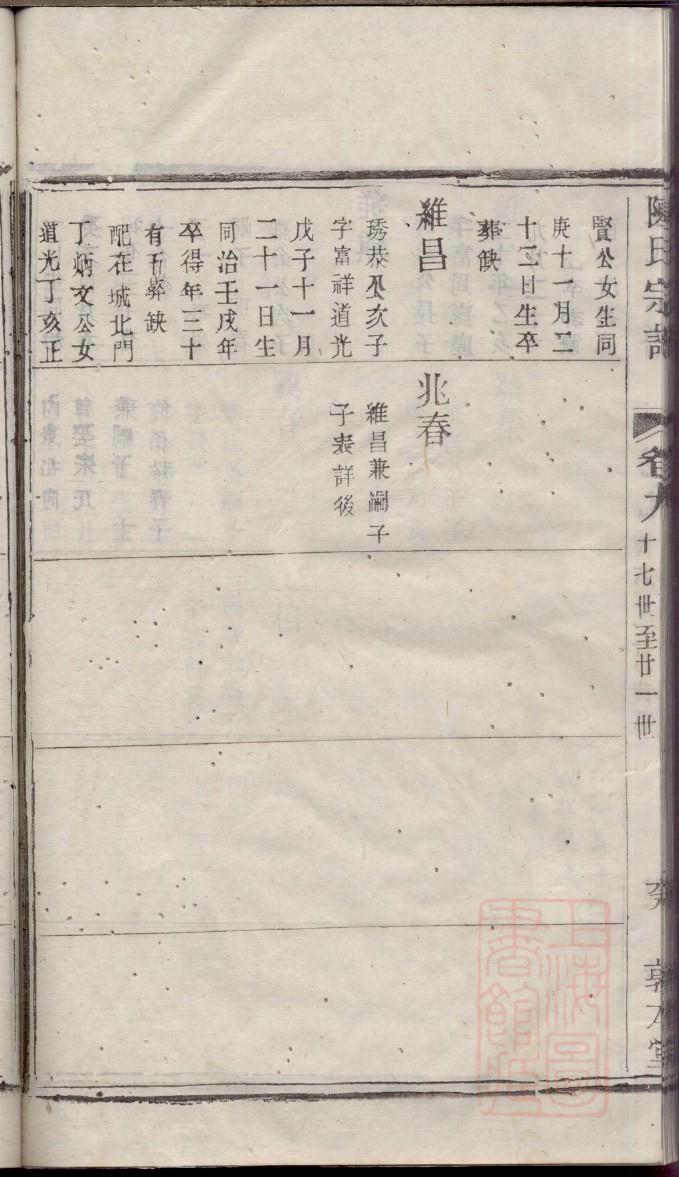 陳氏宗譜
卷九
十七世至廿一世
敦本堂
賢公女生同
庚十一月二
十二日生卒
葬缺
維昌
琇恭公次子
字富祥道光
戊子十一月
二十一日生
同治壬戌年
卒得年三十
有五葬缺
配在城北門
丁炳文公女
道光丁亥正
兆春
維昌兼嗣子
子表詳後
上海圖
書館